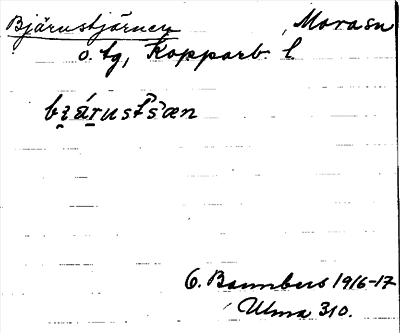 Bjärustjärnen Mora sn
o. tg, Kopparb. l.
bi̯ä́rustšæn
G. Bannbers 1916-17
Ulma 310.